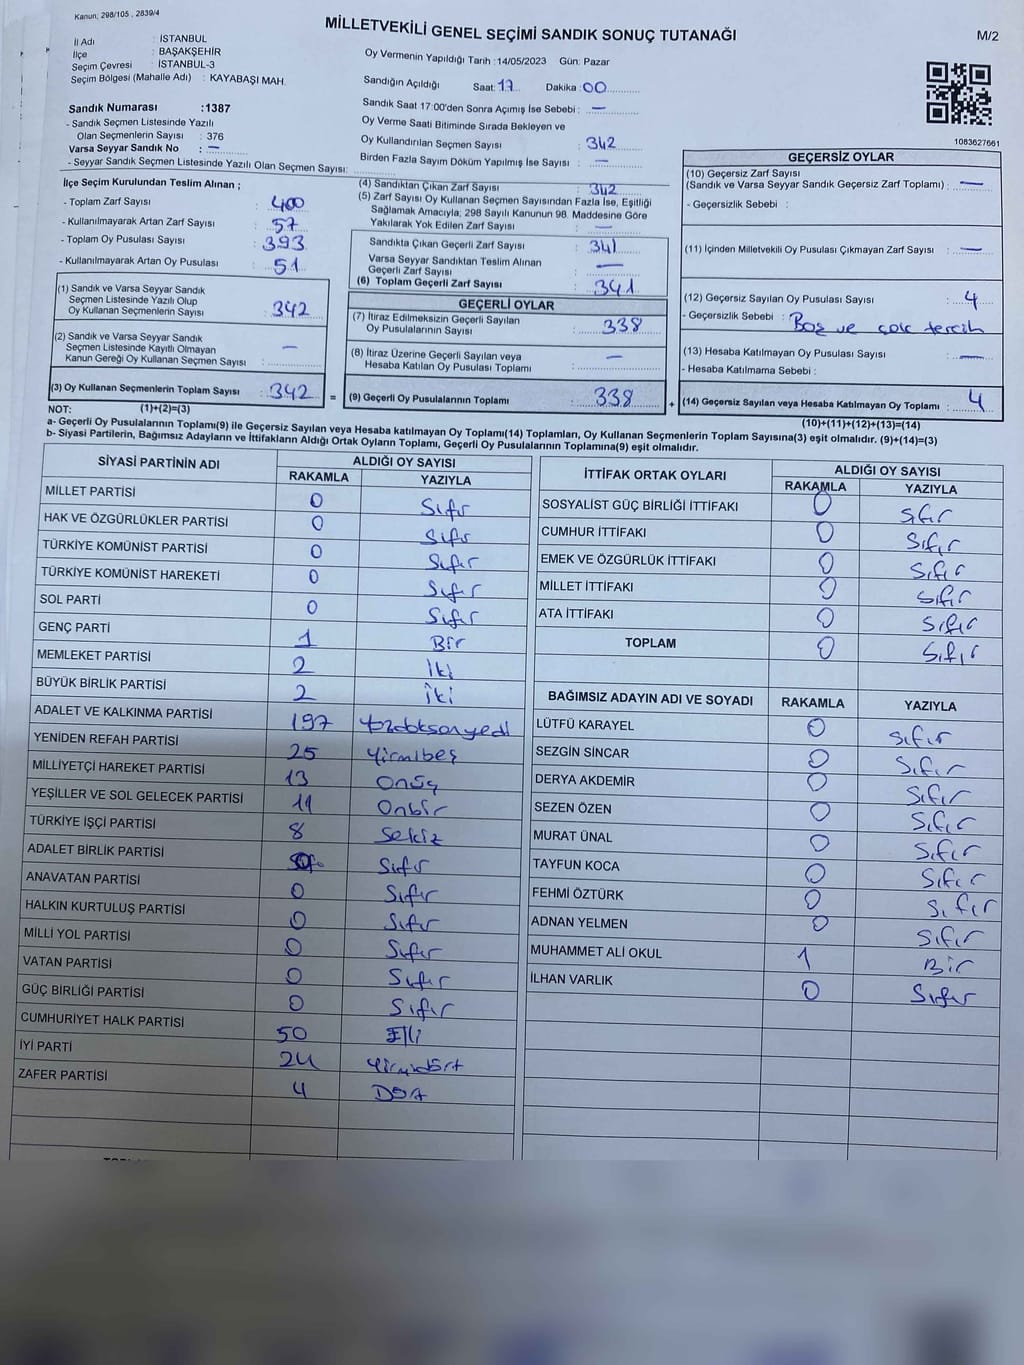 Kanun; 298/105 , 2839/4
MİLLETVEKİLİ GENEL SEÇİMİ SANDIK SONUÇ TUTANAĞI
M/2
İl Adı : İSTANBUL
İlçe : BAŞAKŞEHİR
Seçim Çevresi : İSTANBUL-3
Seçim Bölgesi (Mahalle Adı) : KAYABAŞI MAH.
Sandık Numarası :1387
- Sandık Seçmen Listesinde Yazılı
Olan Seçmenlerin Sayısı : 376
Varsa Seyyar Sandık No : —
- Seyyar Sandık Seçmen Listesinde Yazılı Olan Seçmen Sayısı:
Oy Vermenin Yapıldığı Tarih :14/05/2023 Gün: Pazar
Sandığın Açıldığı Saat: 17 Dakika : 00
Sandık Saat 17:00'den Sonra Açımış İse Sebebi : —
Oy Verme Saati Bitiminde Sırada Bekleyen ve
Oy Kullandırılan Seçmen Sayısı : 342
Birden Fazla Sayım Döküm Yapılmış İse Sayısı : —
1083627661
İlçe Seçim Kurulundan Teslim Alınan ;
- Toplam Zarf Sayısı : 400
- Kullanılmayarak Artan Zarf Sayısı : 57
- Toplam Oy Pusulası Sayısı : 393
- Kullanılmayarak Artan Oy Pusulası : 51
(1) Sandık ve Varsa Seyyar Sandık
Seçmen Listesinde Yazılı Olup
Oy Kullanan Seçmenlerin Sayısı : 342
(2) Sandık ve Varsa Seyyar Sandık
Seçmen Listesinde Kayıtlı Olmayan
Kanun Gereği Oy Kullanan Seçmen Sayısı : —
(3) Oy Kullanan Seçmenlerin Toplam Sayısı : 342 =
(4) Sandıktan Çıkan Zarf Sayısı : 342
(5) Zarf Sayısı Oy Kullanan Seçmen Sayısından Fazla İse, Eşitliği
Sağlamak Amacıyla; 298 Sayılı Kanunun 98. Maddesine Göre
Yakılarak Yok Edilen Zarf Sayısı : —
Sandıkta Çıkan Geçerli Zarf Sayısı : 341
Varsa Seyyar Sandıktan Teslim Alınan
Geçerli Zarf Sayısı : —
(6) Toplam Geçerli Zarf Sayısı : 341
GEÇERLİ OYLAR
(7) İtiraz Edilmeksizin Geçerli Sayılan
Oy Pusulalarının Sayısı : 338
(8) İtiraz Üzerine Geçerli Sayılan veya
Hesaba Katılan Oy Pusulası Toplamı : —
(9) Geçerli Oy Pusulalarının Toplamı : 338 +
GEÇERSİZ OYLAR
(10) Geçersiz Zarf Sayısı
(Sandık ve Varsa Seyyar Sandık Geçersiz Zarf Toplamı) : —
- Geçersizlik Sebebi :
(11) İçinden Milletvekili Oy Pusulası Çıkmayan Zarf Sayısı : —
(12) Geçersiz Sayılan Oy Pusulası Sayısı : 4
- Geçersizlik Sebebi : Boş ve çok tercih
(13) Hesaba Katılmayan Oy Pusulası Sayısı : —
- Hesaba Katılmama Sebebi :
(14) Geçersiz Sayılan veya Hesaba Katılmayan Oy Toplamı : 4
NOT: (1)+(2)=(3)
(10)+(11)+(12)+(13)=(14)
a- Geçerli Oy Pusulalarının Toplamı(9) ile Geçersiz Sayılan veya Hesaba katılmayan Oy Toplamı(14) Toplamları, Oy Kullanan Seçmenlerin Toplam Sayısına(3) eşit olmalıdır. (9)+(14)=(3)
b- Siyasi Partilerin, Bağımsız Adayların ve İttifakların Aldığı Ortak Oyların Toplamı, Geçerli Oy Pusulalarının Toplamına(9) eşit olmalıdır.
SİYASİ PARTİNİN ADI ALDIĞI OY SAYISI
RAKAMLA YAZIYLA
MİLLET PARTİSİ 0 Sıfır
HAK VE ÖZGÜRLÜKLER PARTİSİ 0 Sıfır
TÜRKİYE KOMÜNİST PARTİSİ 0 Sıfır
TÜRKİYE KOMÜNİST HAREKETİ 0 Sıfır
SOL PARTİ 0 Sıfır
GENÇ PARTİ 1 Bir
MEMLEKET PARTİSİ 2 İki
BÜYÜK BİRLİK PARTİSİ 2 İki
ADALET VE KALKINMA PARTİSİ 197 yüzdoksanyedi
YENİDEN REFAH PARTİSİ 25 Yirmibeş
MİLLİYETÇİ HAREKET PARTİSİ 13 Onüç
YEŞİLLER VE SOL GELECEK PARTİSİ 11 Onbir
TÜRKİYE İŞÇİ PARTİSİ 8 Sekiz
ADALET BİRLİK PARTİSİ Sıfır
ANAVATAN PARTİSİ 0 Sıfır
HALKIN KURTULUŞ PARTİSİ 0 Sıfır
MİLLİ YOL PARTİSİ 0 Sıfır
VATAN PARTİSİ 0 Sıfır
GÜÇ BİRLİĞİ PARTİSİ 0 Sıfır
CUMHURİYET HALK PARTİSİ 50 Elli
İYİ PARTİ 24 Yirmidört
ZAFER PARTİSİ 4 Dört
İTTİFAK ORTAK OYLARI ALDIĞI OY SAYISI
RAKAMLA YAZIYLA
SOSYALİST GÜÇ BİRLİĞİ İTTİFAKI 0 Sıfır
CUMHUR İTTİFAKI 0 Sıfır
EMEK VE ÖZGÜRLÜK İTTİFAKI 0 Sıfır
MİLLET İTTİFAKI 0 Sıfır
ATA İTTİFAKI 0 Sıfır
TOPLAM 0 Sıfır
BAĞIMSIZ ADAYIN ADI VE SOYADI RAKAMLA YAZIYLA
LÜTFÜ KARAYEL 0 Sıfır
SEZGİN SİNCAR 0 Sıfır
DERYA AKDEMİR 0 Sıfır
SEZEN ÖZEN 0 Sıfır
MURAT ÜNAL 0 Sıfır
TAYFUN KOCA 0 Sıfır
FEHMİ ÖZTÜRK 0 Sıfır
ADNAN YELMEN 0 Sıfır
MUHAMMET ALİ OKUL 1 Bir
İLHAN VARLIK 0 Sıfır